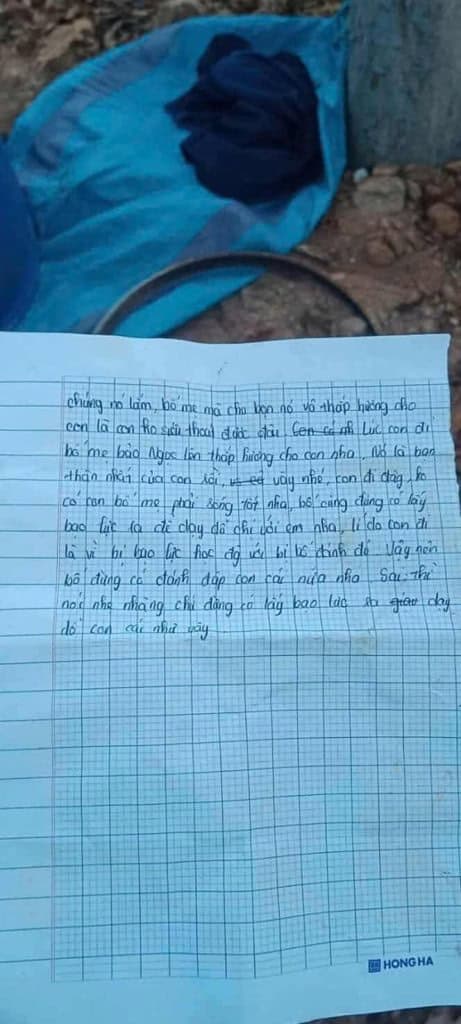 chúng nó lắm, bố mẹ mà cho bọn nó vô thắp hương cho
con là con ko siêu thoát được đâu. Lúc con đi
bố mẹ bảo Ngọc lên thắp hương cho con nha, Nó là bạn
thân nhất của con rồi, vậy nhé, con đi đây, ko
có con bố mẹ phải sống tốt nha, bố cũng đừng có lấy
bạo lực ra để dạy dỗ chị với em nha, lí do con đi
là vì bị bạo lực học đg với bị bố đánh đó Vậy nên
bố đừng có đánh đập con cái nữa nha Sai thì
nói nhẹ nhàng chứ đừng có lấy bạo lực ra dạy
dỗ con cái như vậy
HONG HA